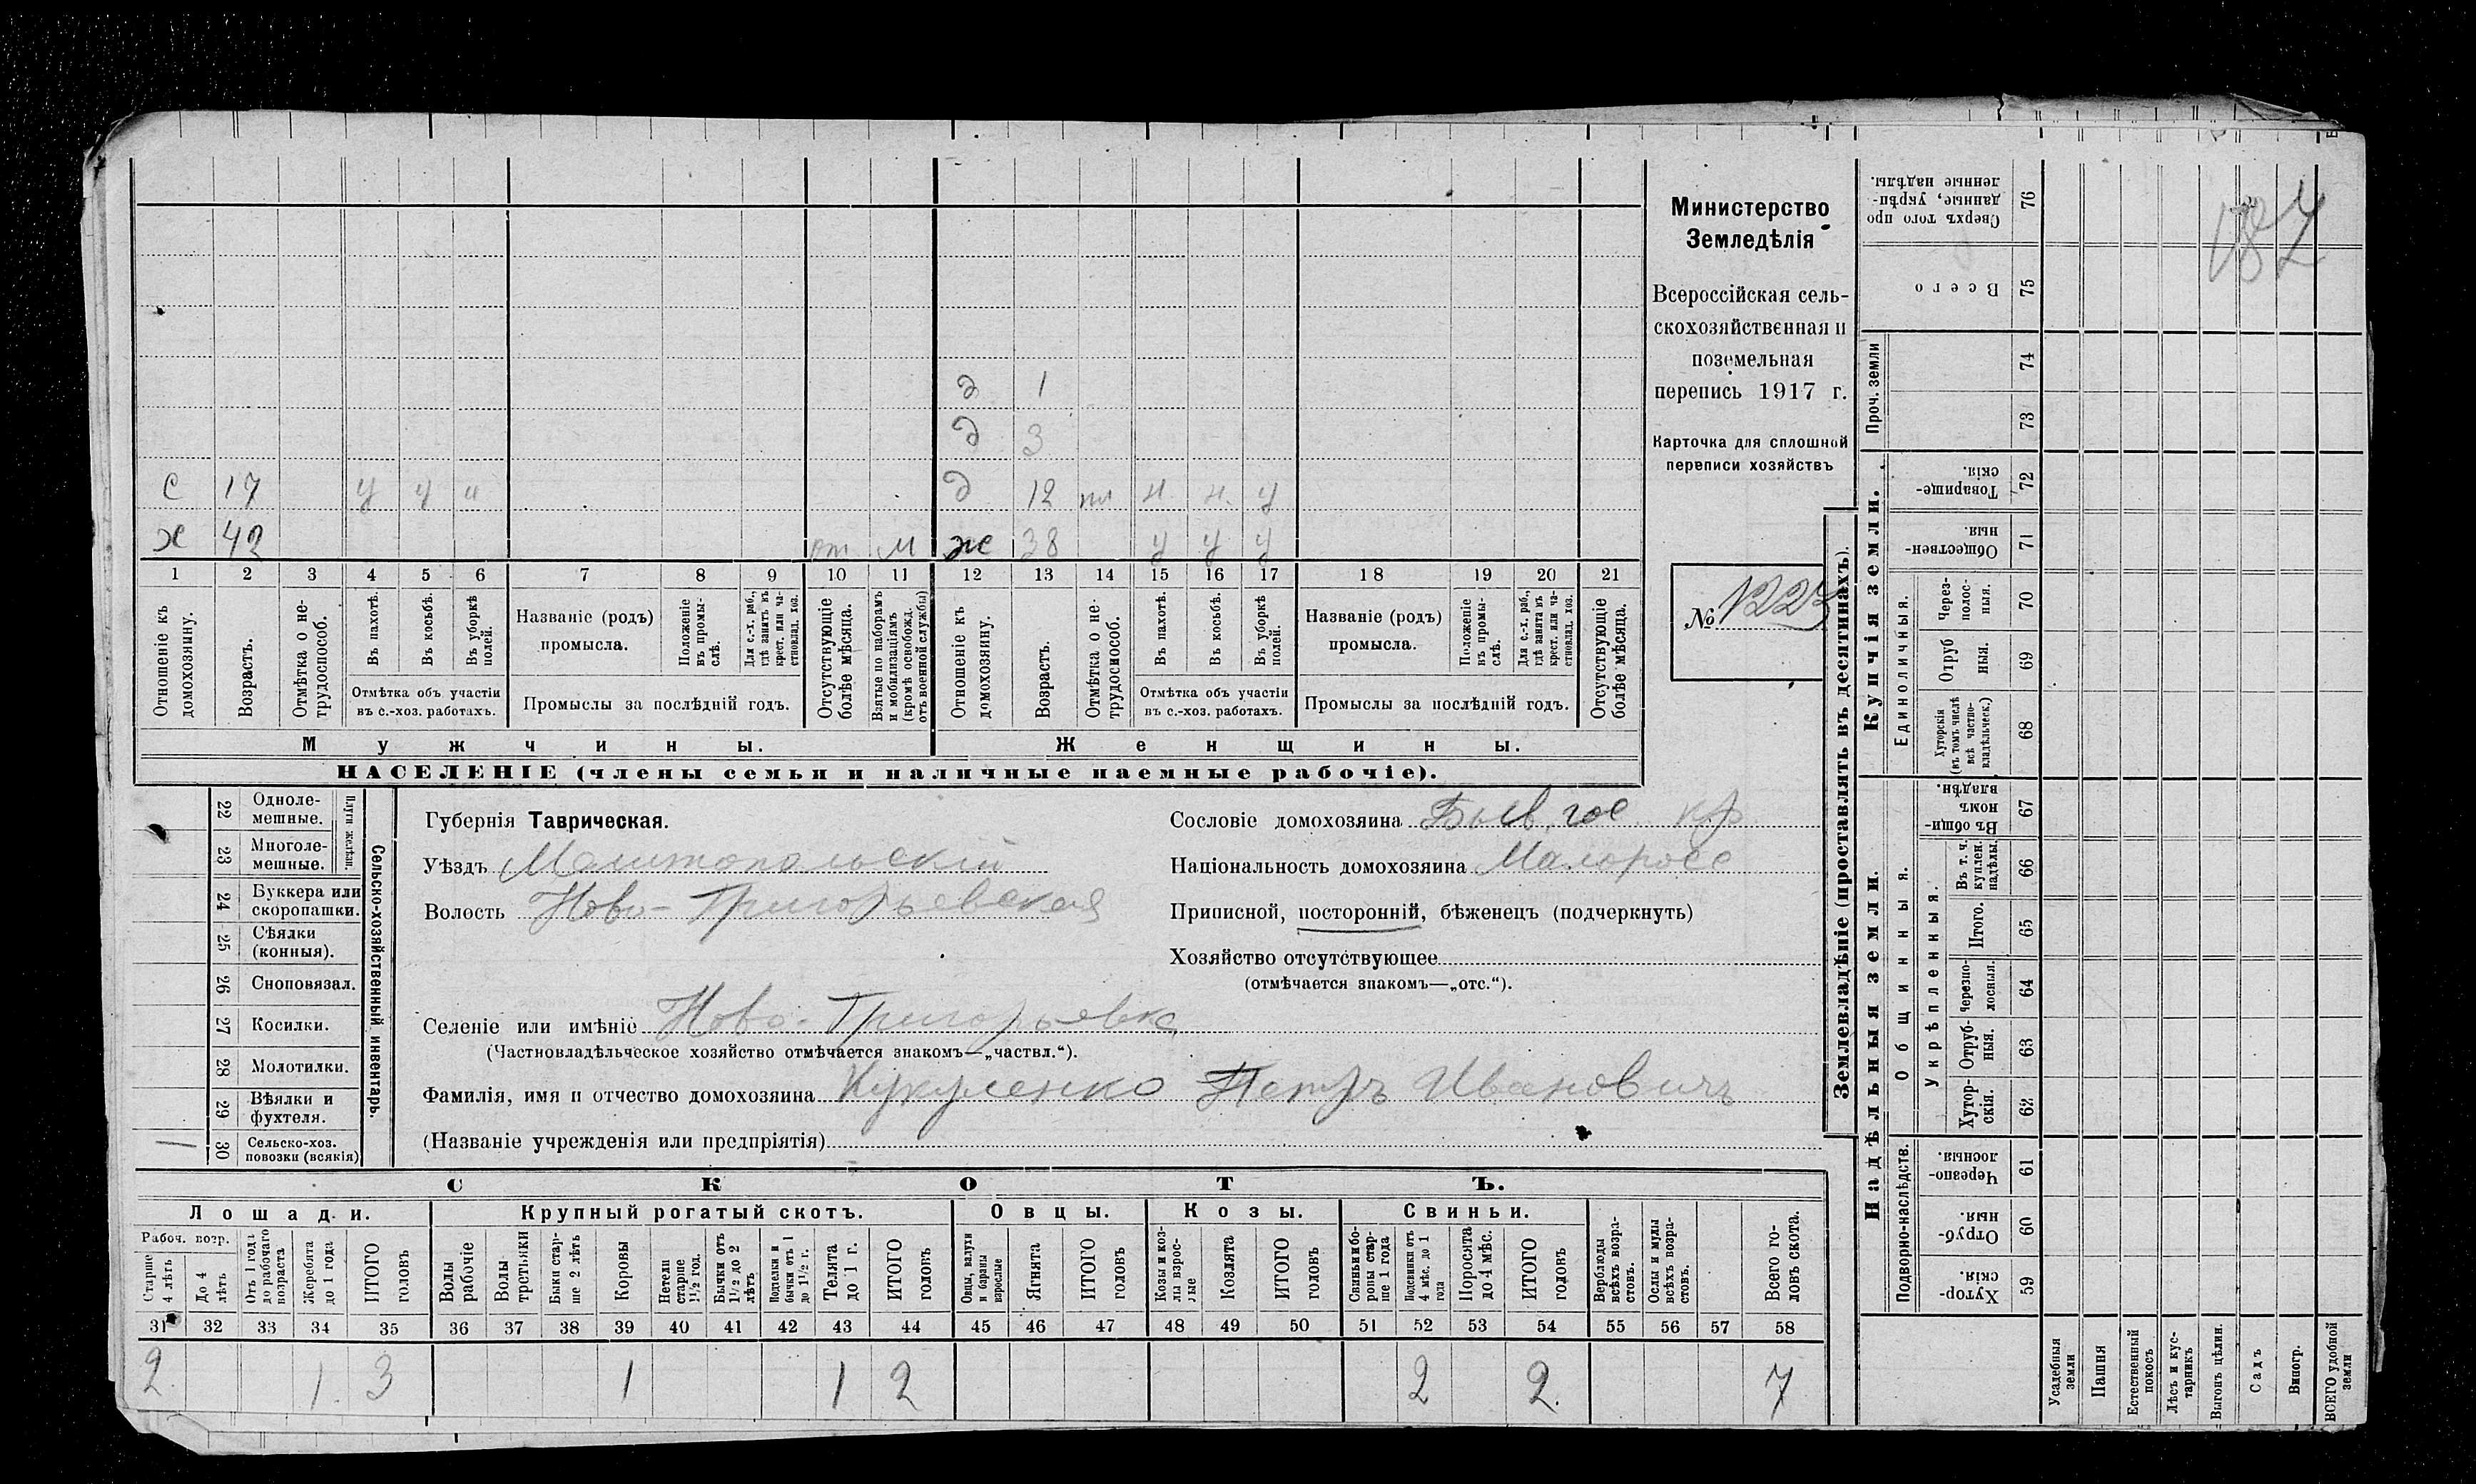 д 1
д 3
с 17 у ч ч д 12 пл н н у
х 42 от м ж 38 у у у
1 2 3 4 5 6 7 8 9 10 11 12 13 14 15 16 17 18 19 20 21
Отношеніе къ домохозяину.
Возрастъ.
Отмѣтка о нетрудоспособ.
Въ пахотѣ.
Въ косьбѣ.
Въ уборкѣ полей.
Отмѣтка объ участіи
въ с.-хоз. работахъ.
Названіе (родъ)
промысла.
Положеніе въ промыслѣ.
Для с.-х. раб., гдѣ занятъ въ крест. или частновлад. хоз.
Промыслы за послѣдній годъ.
Отсутствующіе болѣе мѣсяца.
Взятые по наборамъ и мобилизаціямъ (кромѣ освобожд. отъ военной службы)
Отношеніе къ домохозяину.
Возрастъ.
Отмѣтка о нетрудоспособ.
Въ пахотѣ.
Въ косьбѣ.
Въ уборкѣ полей.
Отмѣтка объ участіи
въ с.-хоз. работахъ.
Названіе (родъ)
промысла.
Положеніе въ промыслѣ.
Для с.-х. раб., гдѣ занята въ крест. или частновлад. хоз.
Промыслы за послѣдній годъ.
Отсутствующіе болѣе мѣсяца.
Мужчины. Женщины.
НАСЕЛЕНІЕ (члены семьи и наличные наемные рабочіе).
Министерство
Земледѣлія
Всероссійская сель-
скохозяйственная и
поземельная
перепись 1917 г.
Карточка для сплошной
переписи хозяйствъ
№ 1223
22 Однолемешные.
23 Многолемешные.
Плуги желѣзн.
24 Буккера или скоропашки.
25 Сѣялки (конныя).
26 Сноповязал.
27 Косилки.
28 Молотилки.
29 Вѣялки и фухтеля.
30 Сельско-хоз. повозки (всякія)
Сельско-хозяйственный инвентарь.
Губернія Таврическая.
Уѣздъ Мелитопольскій
Волость Ново-Григорьевская
Селеніе или имѣніе Ново-Григорьевка
(Частновладѣльческое хозяйство отмѣчается знакомъ—„частвл.“).
Фамилія, имя и отчество домохозяина Кукуленко Петръ Ивановичъ
(Названіе учрежденія или предпріятія)
Сословіе домохозяина Быв. гос кр
Національность домохозяина Малоросс
Приписной, посторонній, бѣженецъ (подчеркнуть)
Хозяйство отсутствующее
(отмѣчается знакомъ—„отс.“).
СКОТЪ.
Лошади. Крупный рогатый скотъ. Овцы. Козы. Свиньи.
Рабоч. возр.
Старше 4 лѣтъ
До 4 лѣтъ
Отъ 1 года до рабочаго возраста
Жеребята до 1 года
ИТОГО головъ
Волы рабочіе
Волы третьяки
Быки старше 2 лѣтъ
Коровы
Нетели старше 1½ год.
Бычки отъ 1½ до 2 лѣтъ
Подтелки и бычки отъ 1 до 1½ г.
Телята до 1 г.
ИТОГО головъ
Овцы, валухи и бараны взрослые
Ягнята
ИТОГО головъ
Козы и козлы взрослые
Козлята
ИТОГО головъ
Свиньи и боровы старше 1 года
Подсвинки отъ 4 мѣс. до 1 года
Поросята до 4 мѣс.
ИТОГО головъ
Верблюды всѣхъ возрастовъ.
Ослы и мулы всѣхъ возрастовъ.
Всего головъ скота.
31 32 33 34 35 36 37 38 39 40 41 42 43 44 45 46 47 48 49 50 51 52 53 54 55 56 57 58
2 1 3 1 1 2 2 2 7
Землевладѣніе (проставлять въ десятинахъ).
Купчія земли.
Надѣльныя земли.
Сверхъ того проданные, укрѣпленные надѣлы. 76
Всего 75
Проч. земли
74
73
Товарищескія. 72
Общественныя. 71
Единоличныя.
Черезполосныя. 70
Отрубныя. 69
Хуторскія (въ томъ числѣ всѣ частновладѣльческ.) 68
Общинныя.
Въ общинномъ владѣн. 67
Укрѣпленныя.
Въ т. ч. куплен. надѣлы. 66
Итого. 65
Черезполосныя. 64
Отрубныя. 63
Хуторскія. 62
Подворно-наслѣдств.
Черезполосныя. 61
Отрубныя. 60
Хуторскія. 59
Усадебныя земли
Пашня
Естественный покосъ
Лѣсъ и кустарникъ
Выгонъ цѣлин.
Садъ
Виногр.
ВСЕГО удобной земли